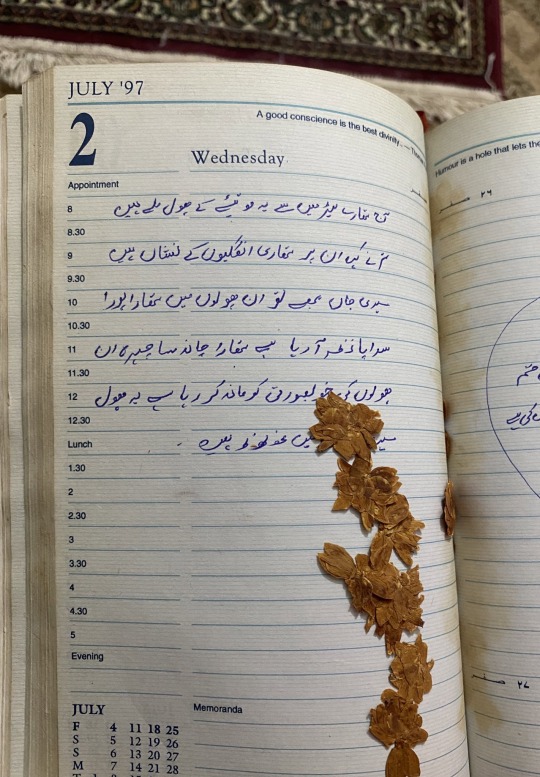 JULY '97
2
A good conscience is the best divinity.
Wednesday
Humour is a hole that lets the
Appointment
٢٦
8
آج تمہارے لیٹر میں سے یہ موتیے کے پھول ملے ہیں
8.30
9
تم نے کہا ان پر تمہاری انگلیوں کے نشان ہیں
9.30
10
میری جان مجھے تو ان پھولوں میں تمہارا پورا
10.30
11
سراپا نظر آ رہا ہے تمہارا چاند سا چہرہ ان
11.30
12
پھولوں کی خوبصورتی کو ماند کر رہا ہے یہ پھول
12.30
Lunch
میں محفوظ ہیں
1.30
2
2.30
3
3.30
4
4.30
5
Evening
٢٧
JULY
Memoranda
F 4 11 18 25
S 5 12 19 26
S 6 13 20 27
M 7 14 21 28